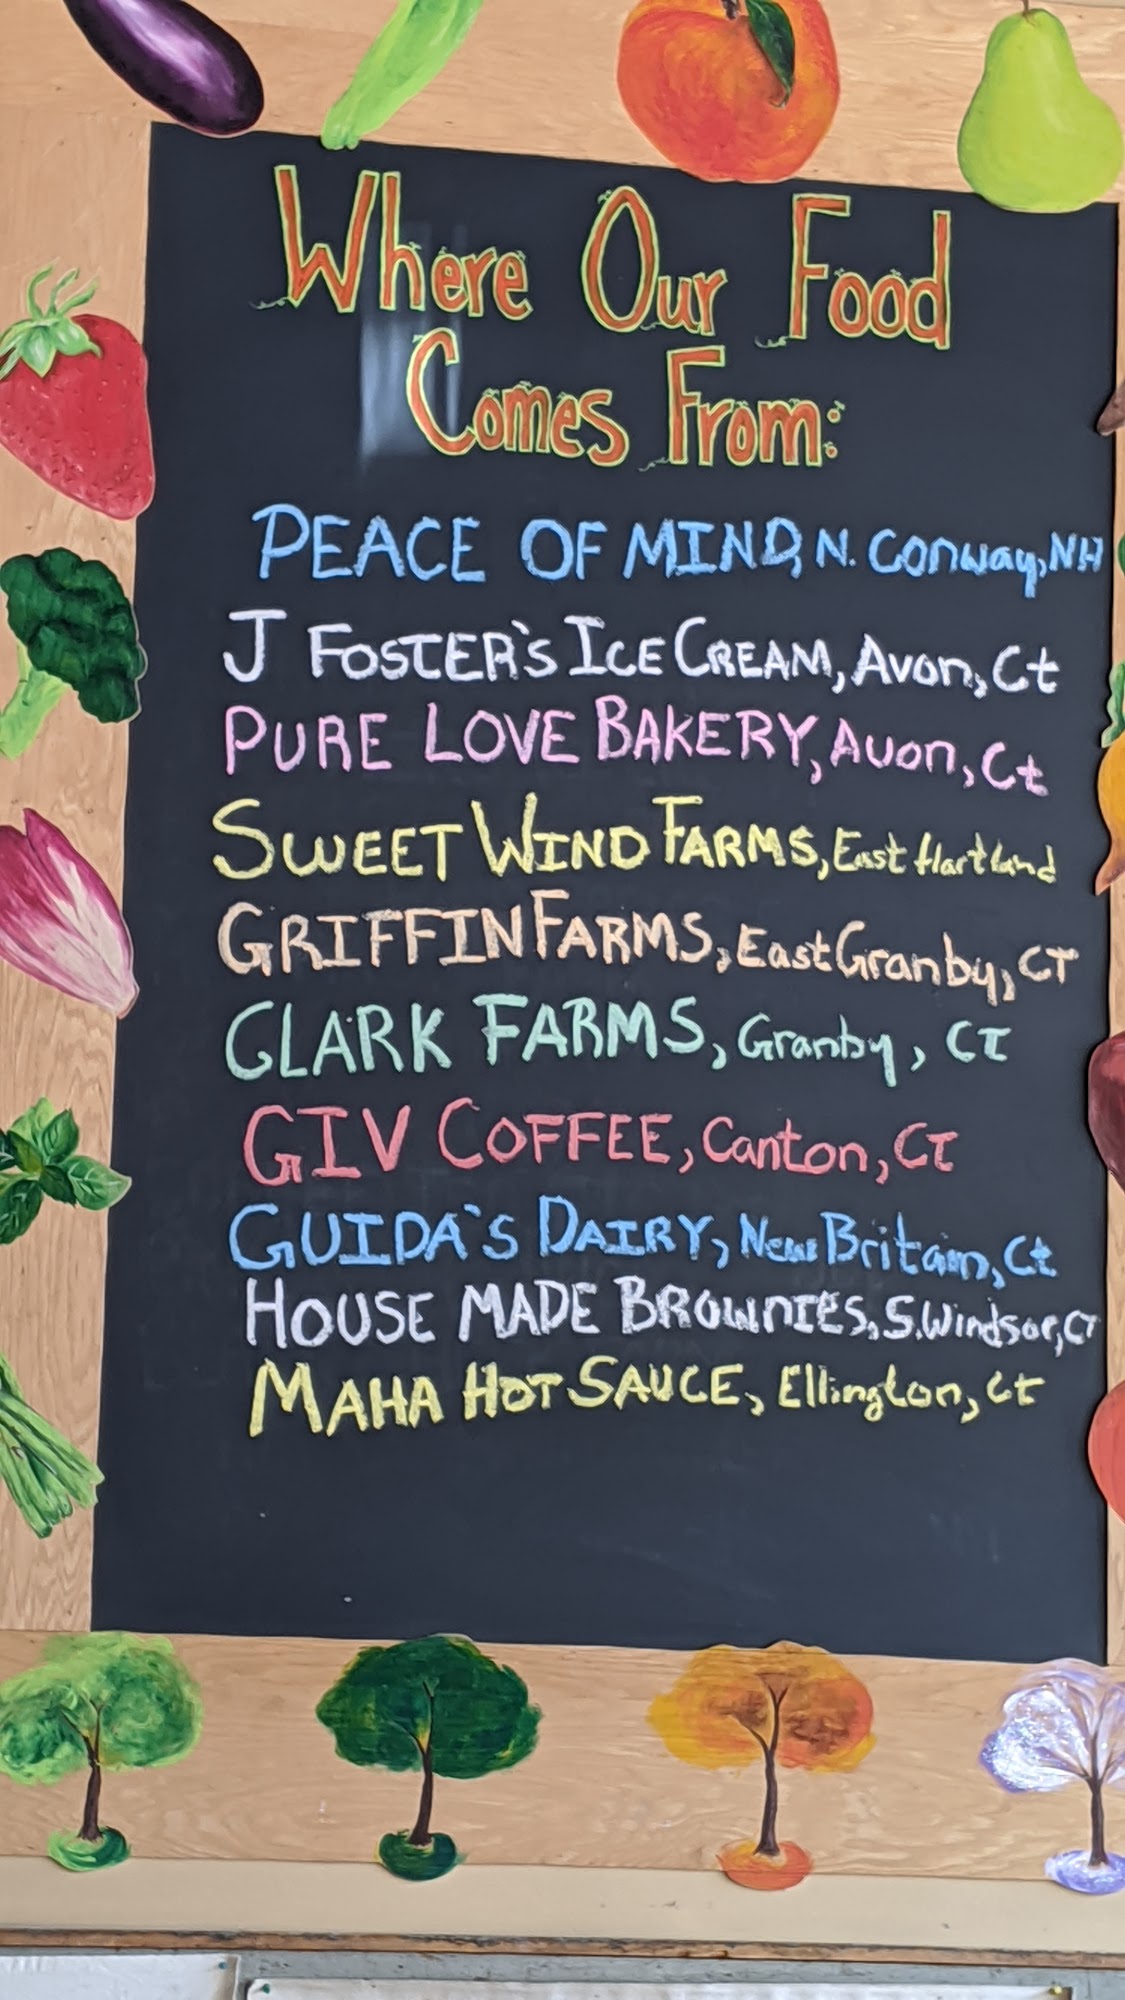 Where Our Food
Comes From:
PEACE OF MIND, N. Conway, NH
J FOSTER'S ICE CREAM, Avon, Ct
PURE LOVE BAKERY, Avon, Ct
SWEET WIND FARMS, East Hartland
GRIFFIN FARMS, East Granby, CT
CLARK FARMS, Granby, CT
GIV COFFEE, Canton, CT
GUIDA'S DAIRY, New Britain, Ct
HOUSE MADE BROWNIES, S. Windsor, CT
MAHA HOT SAUCE, Ellington, Ct